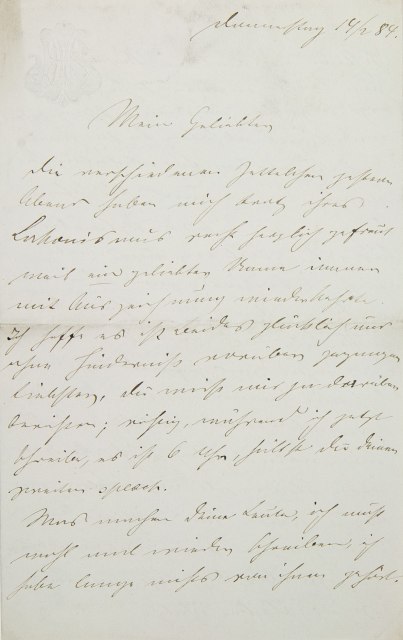 Donnerstag 14/2 84.
Mein Geliebter
die verschiedenen Zettelchen gestern
Abend haben mich trotz ihres
Lakonismus recht herzlich gefreut
weil ein geliebter Name immer
mit Auszeichnung wiederkehrte.
Ich hoffe es ist beides glücklich und
ohne Hinderniss vorüber gegangen
Liebster, du mußt mir ja darüber
berichten; richtig, während ich jetzt
schreibe, es ist 6 Uhr, hältst du deinen
zweiten speech.
Was machen deine Leute, ich muß
wohl mal wieder schreiben, ich
habe lange nichts von ihnen gehört.